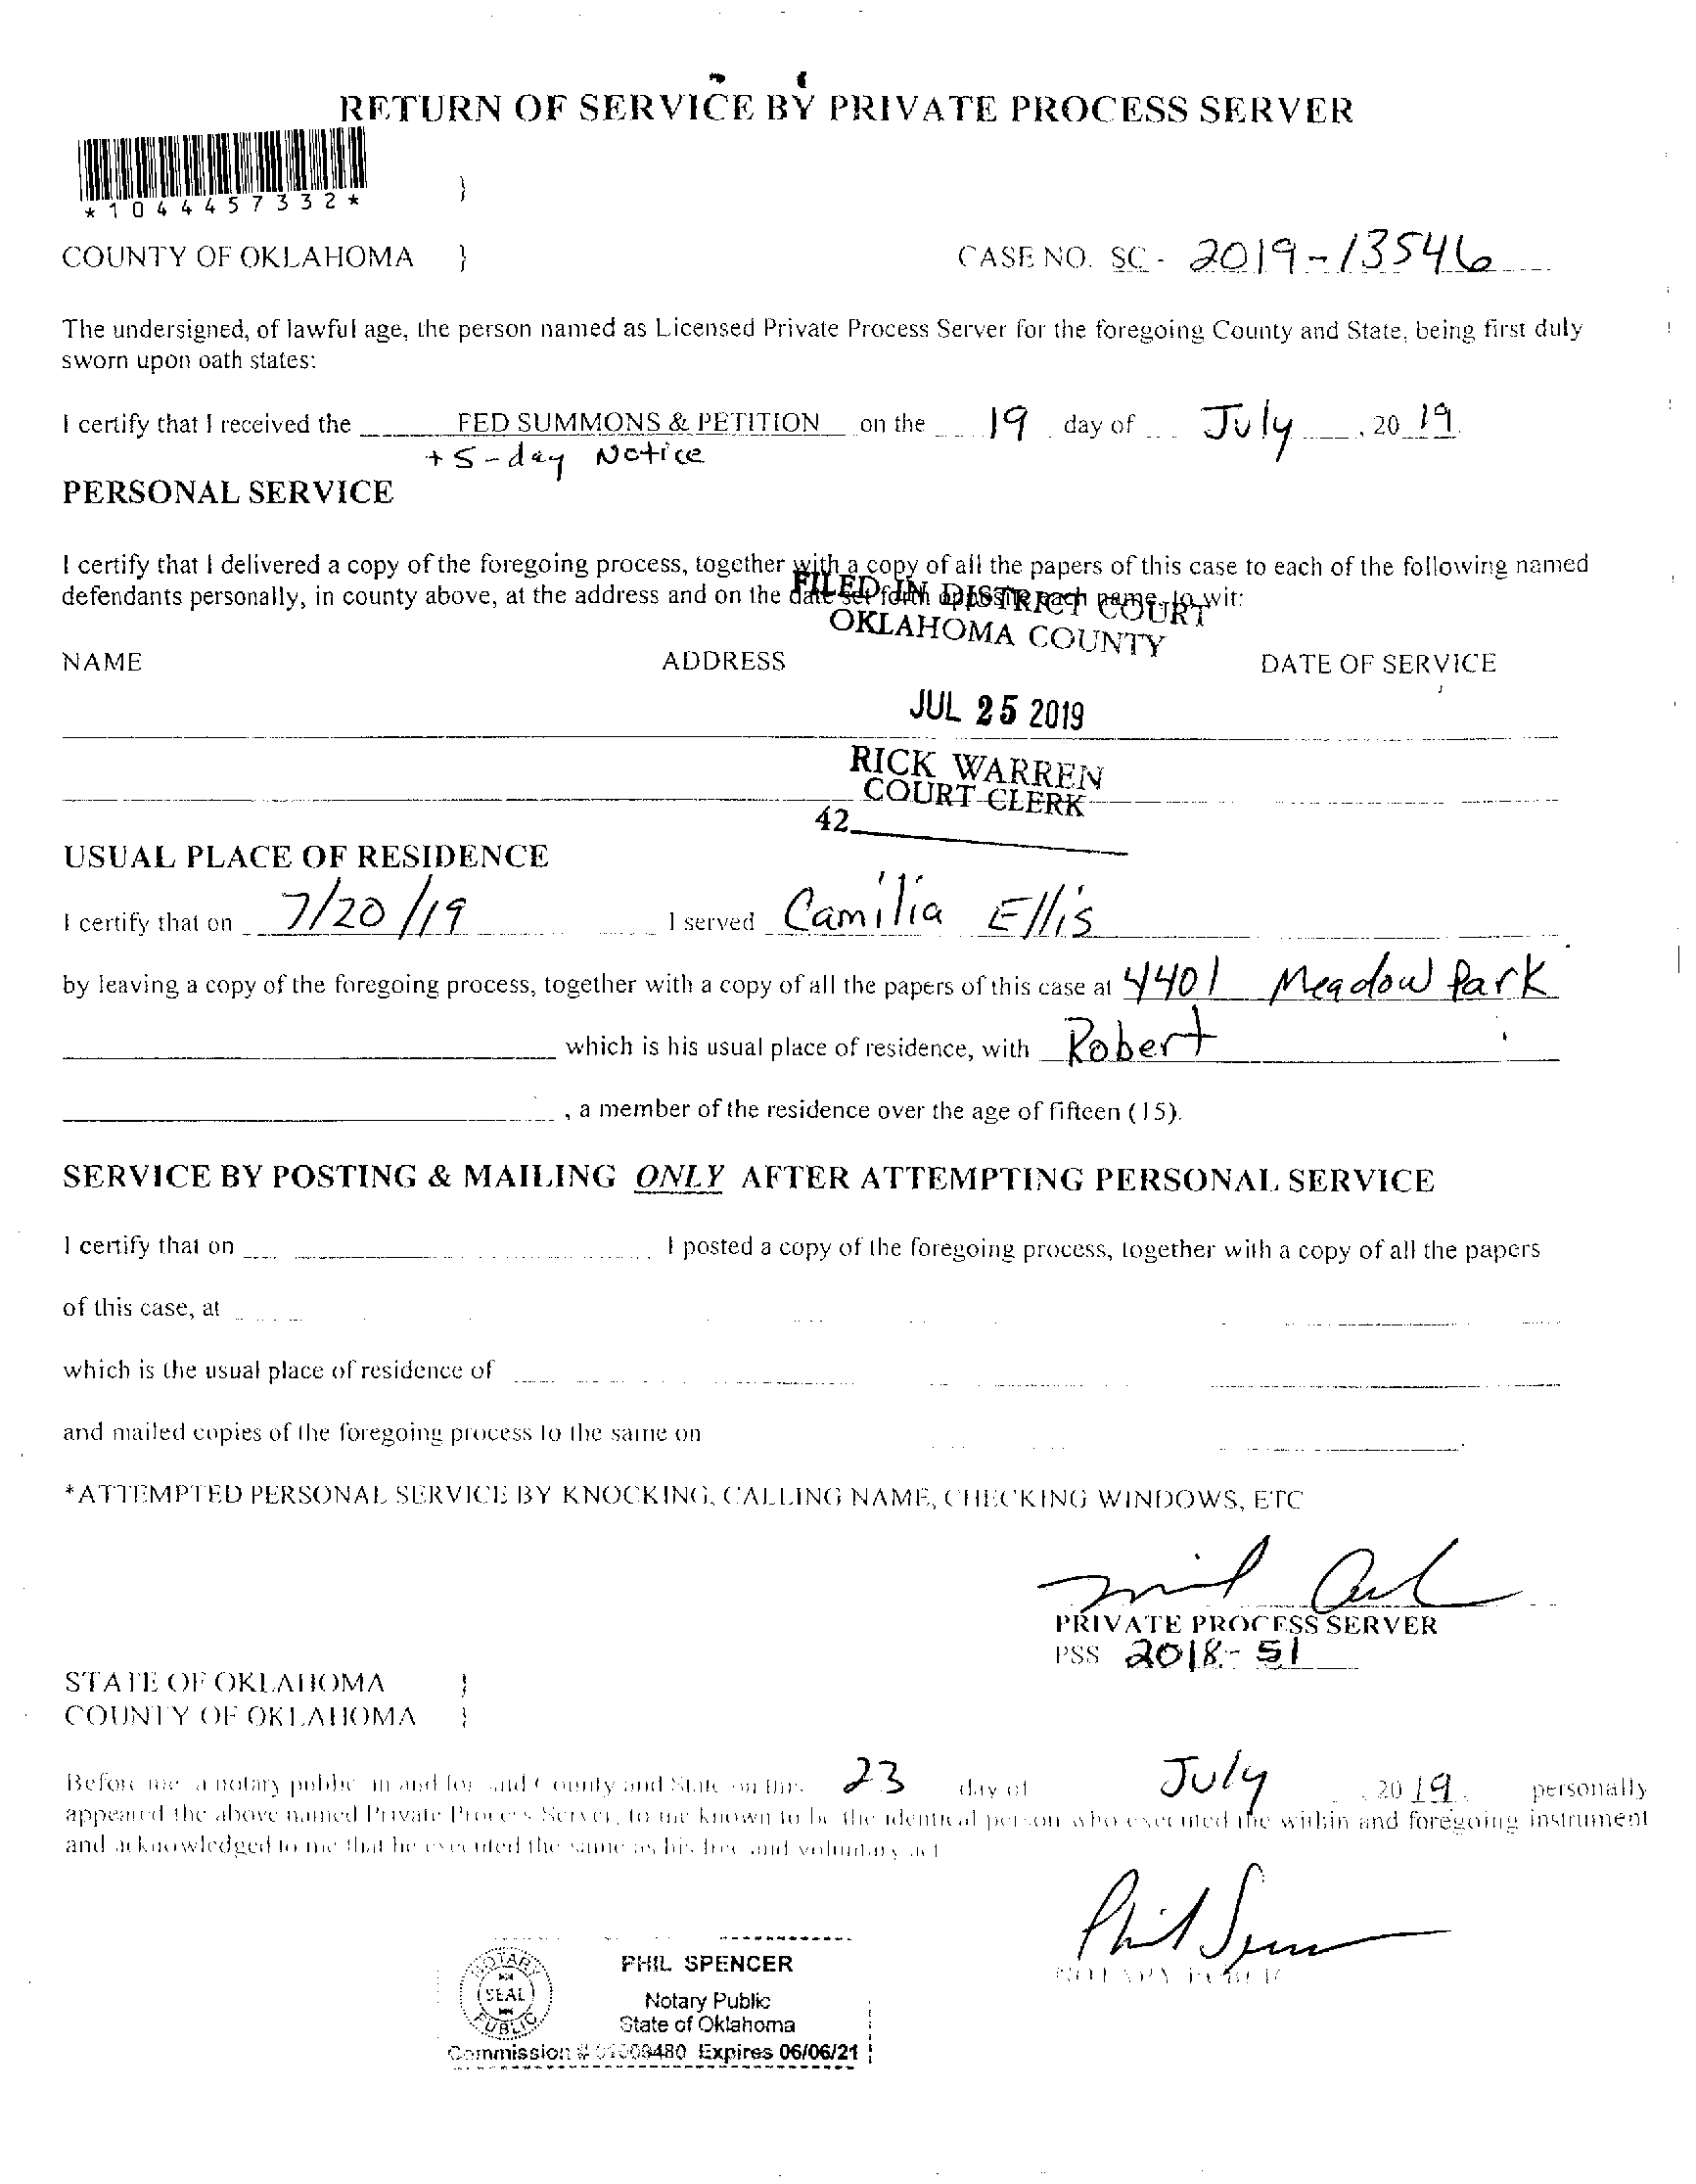 RETURN OF SERVICE BY PRIVATE PROCESS SERVER
*1044457332*
}
COUNTY OF OKLAHOMA } CASE NO. SC - 2019-13546
The undersigned, of lawful age, the person named as Licensed Private Process Server for the foregoing County and State, being first duly
sworn upon oath states:
I certify that I received the FED SUMMONS & PETITION on the 19 day of July, 20 19.
+ 5-day Notice
PERSONAL SERVICE
I certify that I delivered a copy of the foregoing process, together with a copy of all the papers of this case to each of the following named
defendants personally, in county above, at the address and on the date set forth opposite each name, to wit:
FILED IN DISTRICT COURT
OKLAHOMA COUNTY
NAME ADDRESS DATE OF SERVICE
JUL 25 2019
RICK WARREN
COURT CLERK
42
USUAL PLACE OF RESIDENCE
I certify that on 7/20/19 I served Camilia Ellis
by leaving a copy of the foregoing process, together with a copy of all the papers of this case at 4401 Meadow Park
which is his usual place of residence, with Robert
, a member of the residence over the age of fifteen (15).
SERVICE BY POSTING & MAILING ONLY AFTER ATTEMPTING PERSONAL SERVICE
I certify that on I posted a copy of the foregoing process, together with a copy of all the papers
of this case, at
which is the usual place of residence of
and mailed copies of the foregoing process to the same on
*ATTEMPTED PERSONAL SERVICE BY KNOCKING, CALLING NAME, CHECKING WINDOWS, ETC
PRIVATE PROCESS SERVER
PSS 2018-51
STATE OF OKLAHOMA }
COUNTY OF OKLAHOMA }
Before me a notary public in and for said County and State on this 23 day of July, 20 19. personally
appeared the above named Private Process Server, to me known to be the identical person who executed the within and foregoing instrument
and acknowledged to me that he executed the same as his free and voluntary act
Phil Spencer
NOTARY PUBLIC
NOTARY
SEAL
PUBLIC
PHIL SPENCER
Notary Public
State of Oklahoma
Commission # Expires 06/06/21